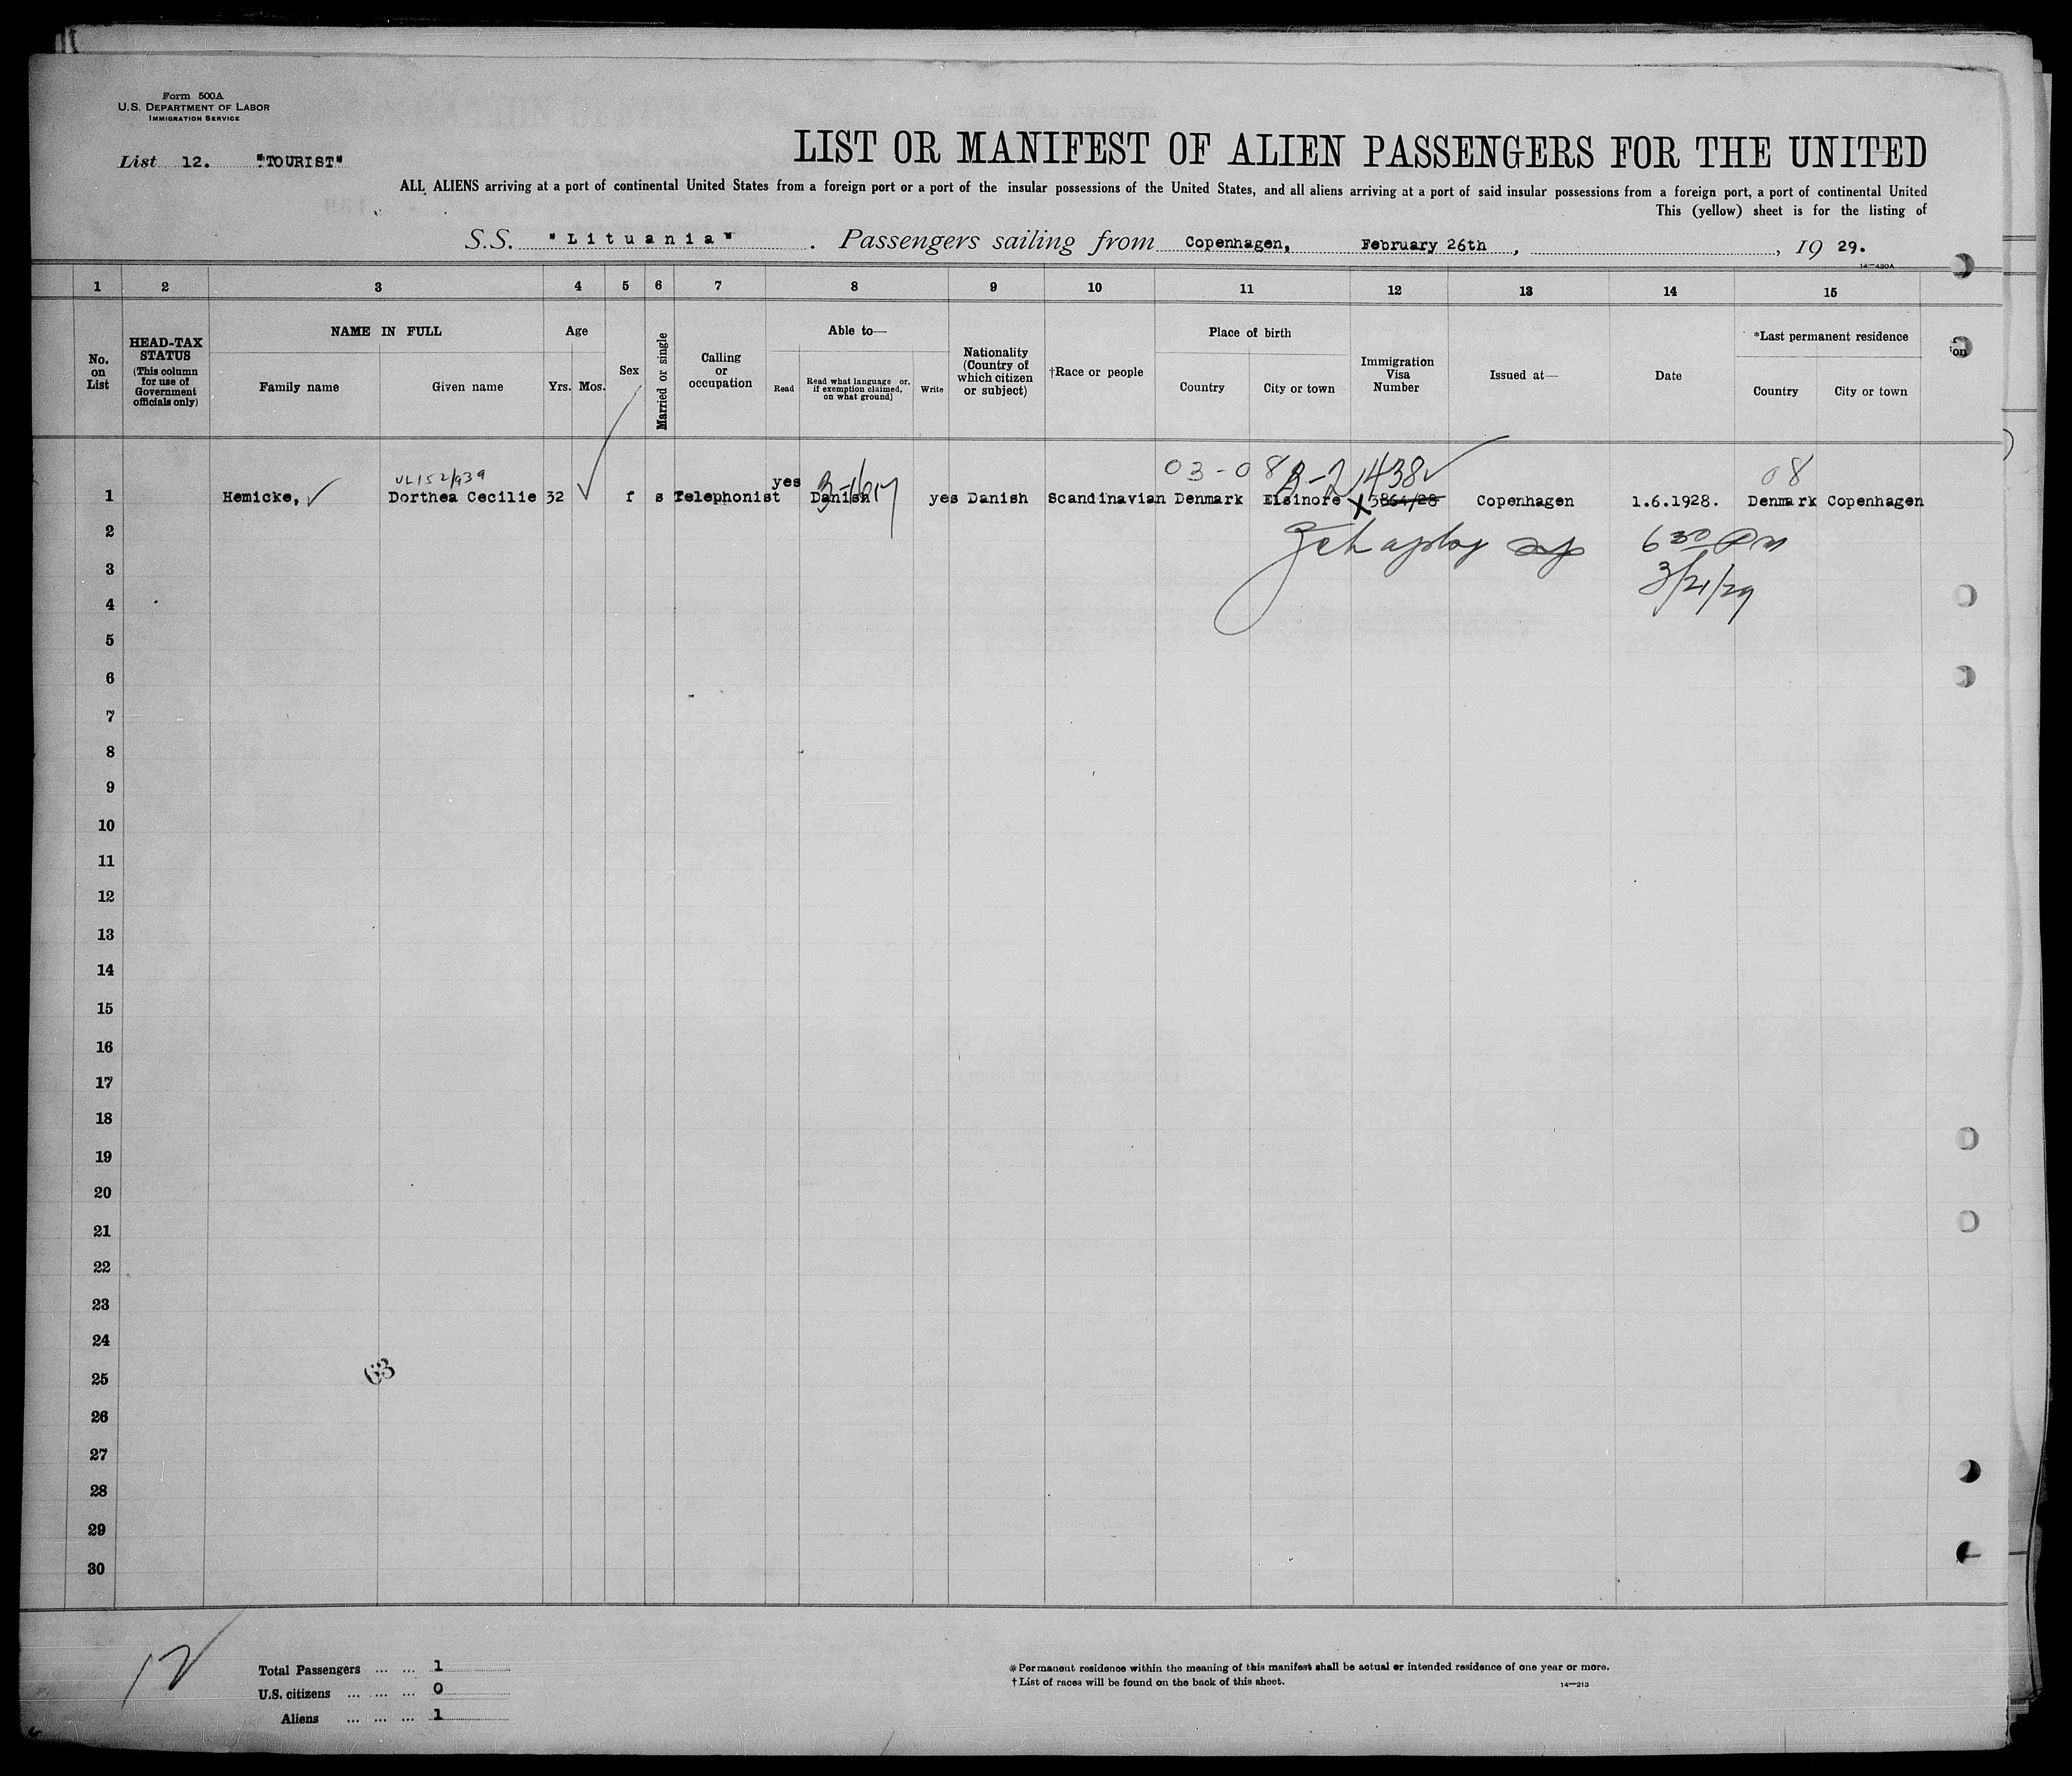 Form 500A
U.S. DEPARTMENT OF LABOR
IMMIGRATION SERVICE
List 12. "TOURIST"
LIST OR MANIFEST OF ALIEN PASSENGERS FOR THE UNITED
ALL ALIENS arriving at a port of continental United States from a foreign port or a port of the insular possessions of the United States, and all aliens arriving at a port of said insular possessions from a foreign port, a port of continental United
This (yellow) sheet is for the listing of
S.S. "Lituania" . Passengers sailing from Copenhagen, February 26th , , 19 29.
14—430A
1 2 3 4 5 6 7 8 9 10 11 12 13 14 15
No. on List
HEAD-TAX STATUS
(This column for use of Government officials only)
NAME IN FULL
Family name Given name
Age
Yrs. Mos.
Sex
Married or single
Calling or occupation
Able to—
Read Read what language or, if exemption claimed, on what ground] Write
Nationality (Country of which citizen or subject)
†Race or people
Place of birth
Country City or town
Immigration Visa Number
Issued at—
Date
*Last permanent residence
Country City or town
on
03-08 1438 08
1 Hemicke, Dorthea Cecilie 32 f s Telephonist yes Danish yes Danish Scandinavian Denmark Elsinore 3864/28 Copenhagen 1.6.1928. Denmark Copenhagen
2
630 PM
3
3/21/29
4
5
6
7
8
9
10
11
12
13
14
15
16
17
18
19
20
21
22
23
24
25
63
26
27
28
29
30
12
Total Passengers ... ... 1
U.S. citizens ... ... ... 0
Aliens ... ... ... 1
*Permanent residence within the meaning of this manifest shall be actual or intended residence of one year or more.
†List of races will be found on the back of this sheet.
14—213